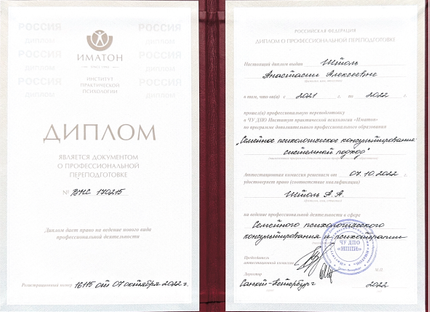 ИМАТОН
ИНСТИТУТ
ПРАКТИЧЕСКОЙ
ПСИХОЛОГИИ
ДИПЛОМ
ЯВЛЯЕТСЯ ДОКУМЕНТОМ
О ПРОФЕССИОНАЛЬНОЙ
ПЕРЕПОДГОТОВКЕ
№
Диплом дает право на ведение нового вида
профессиональной деятельности
Регистрационный номер 16115 от 07 октября 2022 г.
РОССИЙСКАЯ ФЕДЕРАЦИЯ
ДИПЛОМ О ПРОФЕССИОНАЛЬНОЙ ПЕРЕПОДГОТОВКЕ
Настоящий диплом выдан Штоль
Анастасии Алексеевне
в том, что он(а) с 2021 по 2022 г.
прошел(а) профессиональную переподготовку
в ЧУ ДПО Институт практической психологии «Иматон»
по программе дополнительного профессионального образования
"Семейное психологическое консультирование:
системный подход"
Аттестационная комиссия решением от 07.10.2022 г.
удостоверяет право (соответствие квалификации)
Штоль А.А.
на ведение профессиональной деятельности в сфере
Семейного психологического
консультирования и психотерапии
Председатель
аттестационной комиссии
Директор
Санкт-Петербург 2022
ЧУ ДПО